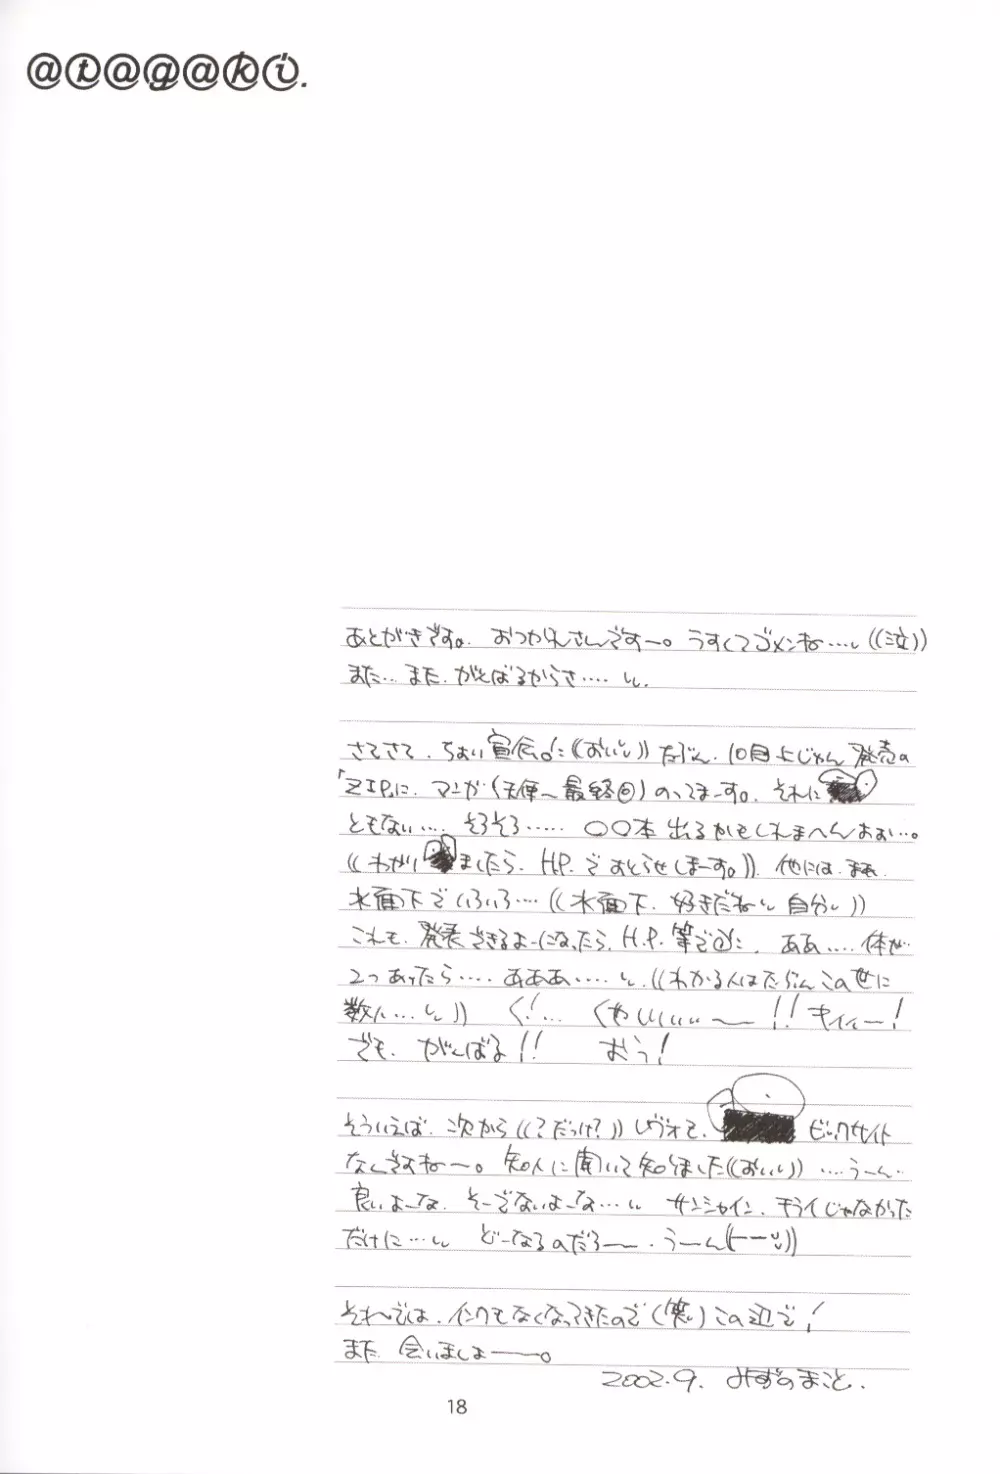 @t@g@ki.
あとがきです。おつかれさんですー。うすくてゴメンね….((泣))
また…また、がんばるからさ….
さてさて、ちょい宣伝。((おいし)) たぶん、10月上じゅん発売の
「ZIP」に、マンガ(天使〜最終回)のってまーす。それに
ともない…. そろそろ….. 〇〇本 出るかもしれまへんおぉ…。
((わかりましたら、H.P.でおしらせしまーす。)) 他には、まぁ
水面下でいろいろ….((水面下、好きだねい 自分い))
これも、発表できるよーになったら、H.P.等で、ああ…..体が
2つあったら….. あああ….. ((わかる人はたぶんこの世に
数人….)) くやしいいいー!! キイィー!
でも、がんばる!! おう!
そういえば、次から((?だっけ?)) レヴォて、ビックサイト
なんですねー。知人に聞いて知りました((おいい)) ….うーん..
良いよーな、そーでないよーな…. サンシャイン、キライじゃなかった
だけに…. どーなるのだろー. うーん
それでは、インクもなくなってきたので(笑)この辺で!
また、会いましょーー。
2002.9. みずのまこと.
18